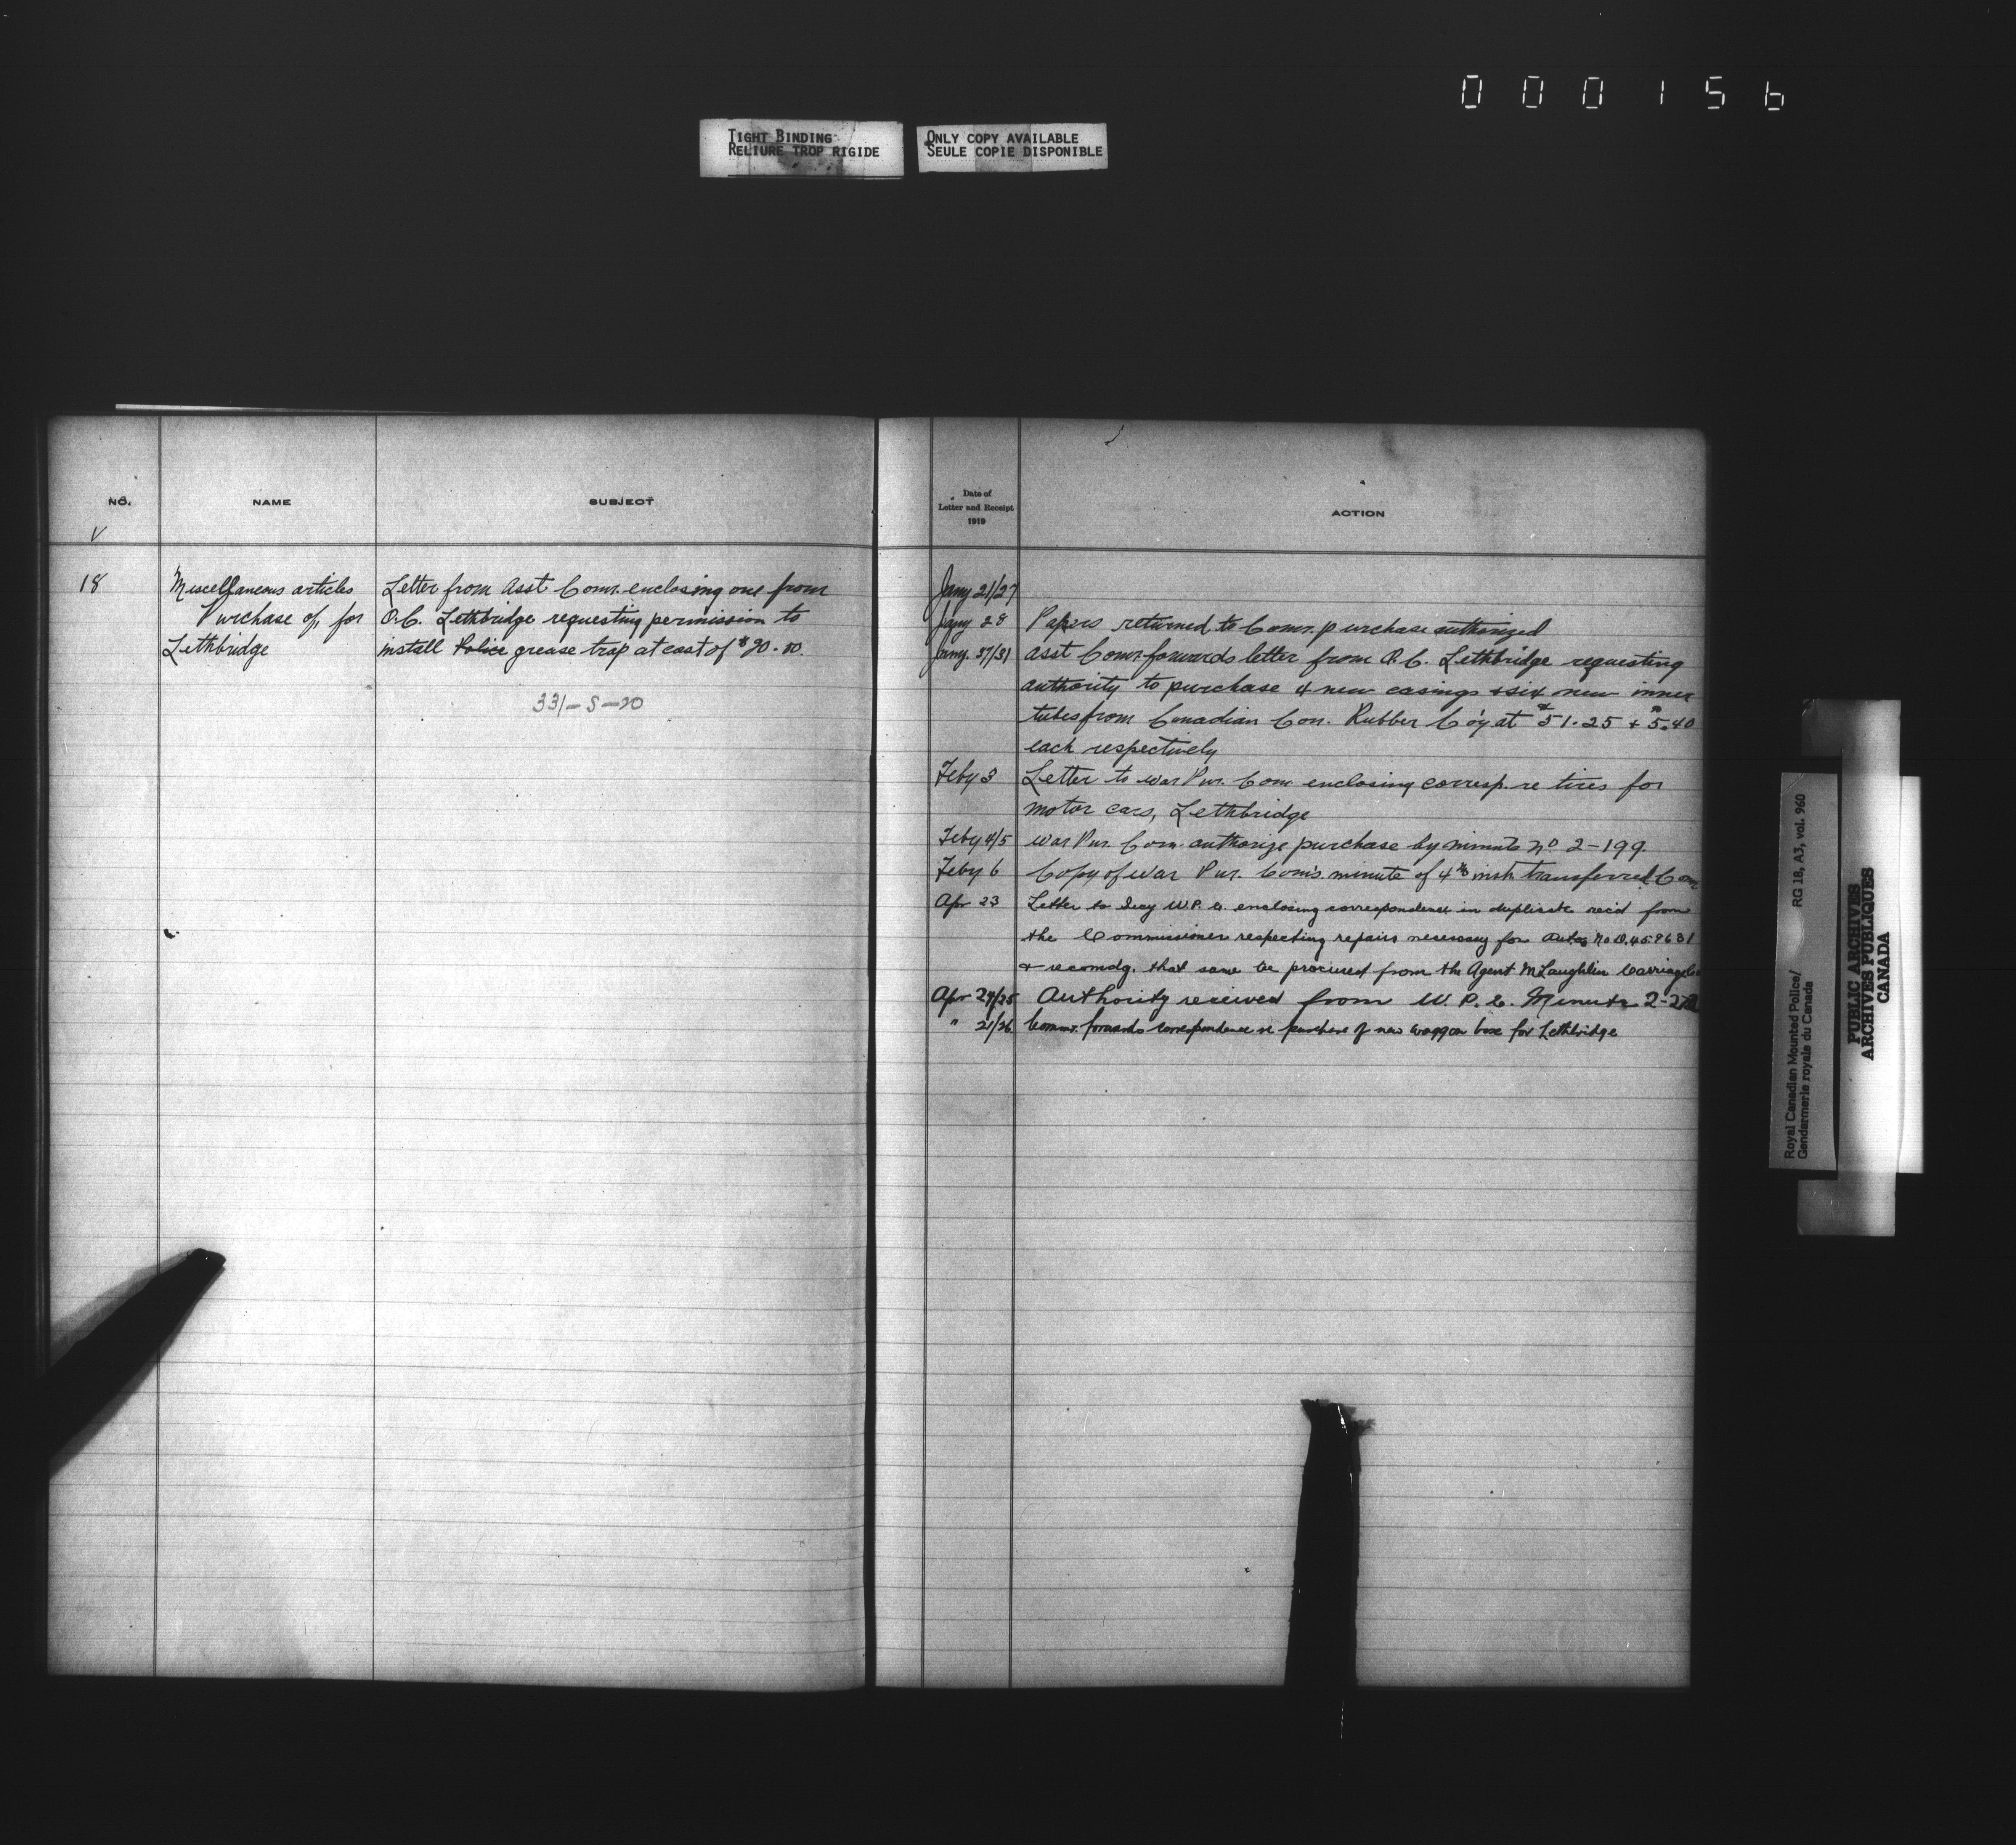 000156
TIGHT BINDING
RELIURE TROP RIGIDE
ONLY COPY AVAILABLE
SEULE COPIE DISPONIBLE
NO.
NAME
SUBJECT
18
Miscellaneous articles
Purchase of, for
Lethbridge
Letter from Asst Comr. enclosing one from
O.C. Lethbridge requesting permission to
install Police grease trap at cost of $
331-S-20
Date of
Letter and Receipt
1919
ACTION
Jany 21/27
Jany 28 Papers returned to Comr. purchase authorized
Jany. /31 Asst Comr. forwards letter from O.C. Lethbridge requesting
authority to purchase 4 new casings & six new inner
tubes from Canadian Con. Rubber Co'y at $51.25 + $5.40
each respectively
Feby 3 Letter to War Pur. Com enclosing corresp. re tires for
motor cars, Lethbridge
Feby 4/5 War Pur. Com. authorize purchase by minute no 2-199.
Feby 6 Copy of War Pur. Com's. minute of 4th inst. transferred Com
Apr 23 Letter to Secy W.P.C. enclosing correspondence in duplicate rec'd from
the Commissioner respecting repairs necessary for Auto No D.45.
& recomdg. that same be procured from the Agent McLaughlin Carriage Co
Apr 24/25 Authority received from W.P.C. Minute
" 21/26 Commr. forwards correspondence re purchase of new waggon box for Lethbridge
Royal Canadian Mounted Police/
Gendarmerie royale du Canada
RG 18, A3, vol. 960
PUBLIC ARCHIVES
ARCHIVES PUBLIQUES
CANADA